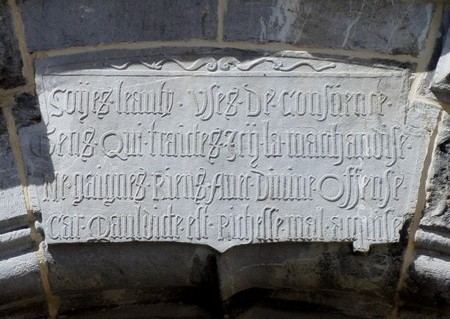 Soÿes leaulx · Uses · De Consience ·
Gens · Qui · traictes · Icy · la · marchandise ·
Ne gaignes · Riens · Avec · Divine · Offense
Car · Mauldicte · est · Richesse · mal · aquise